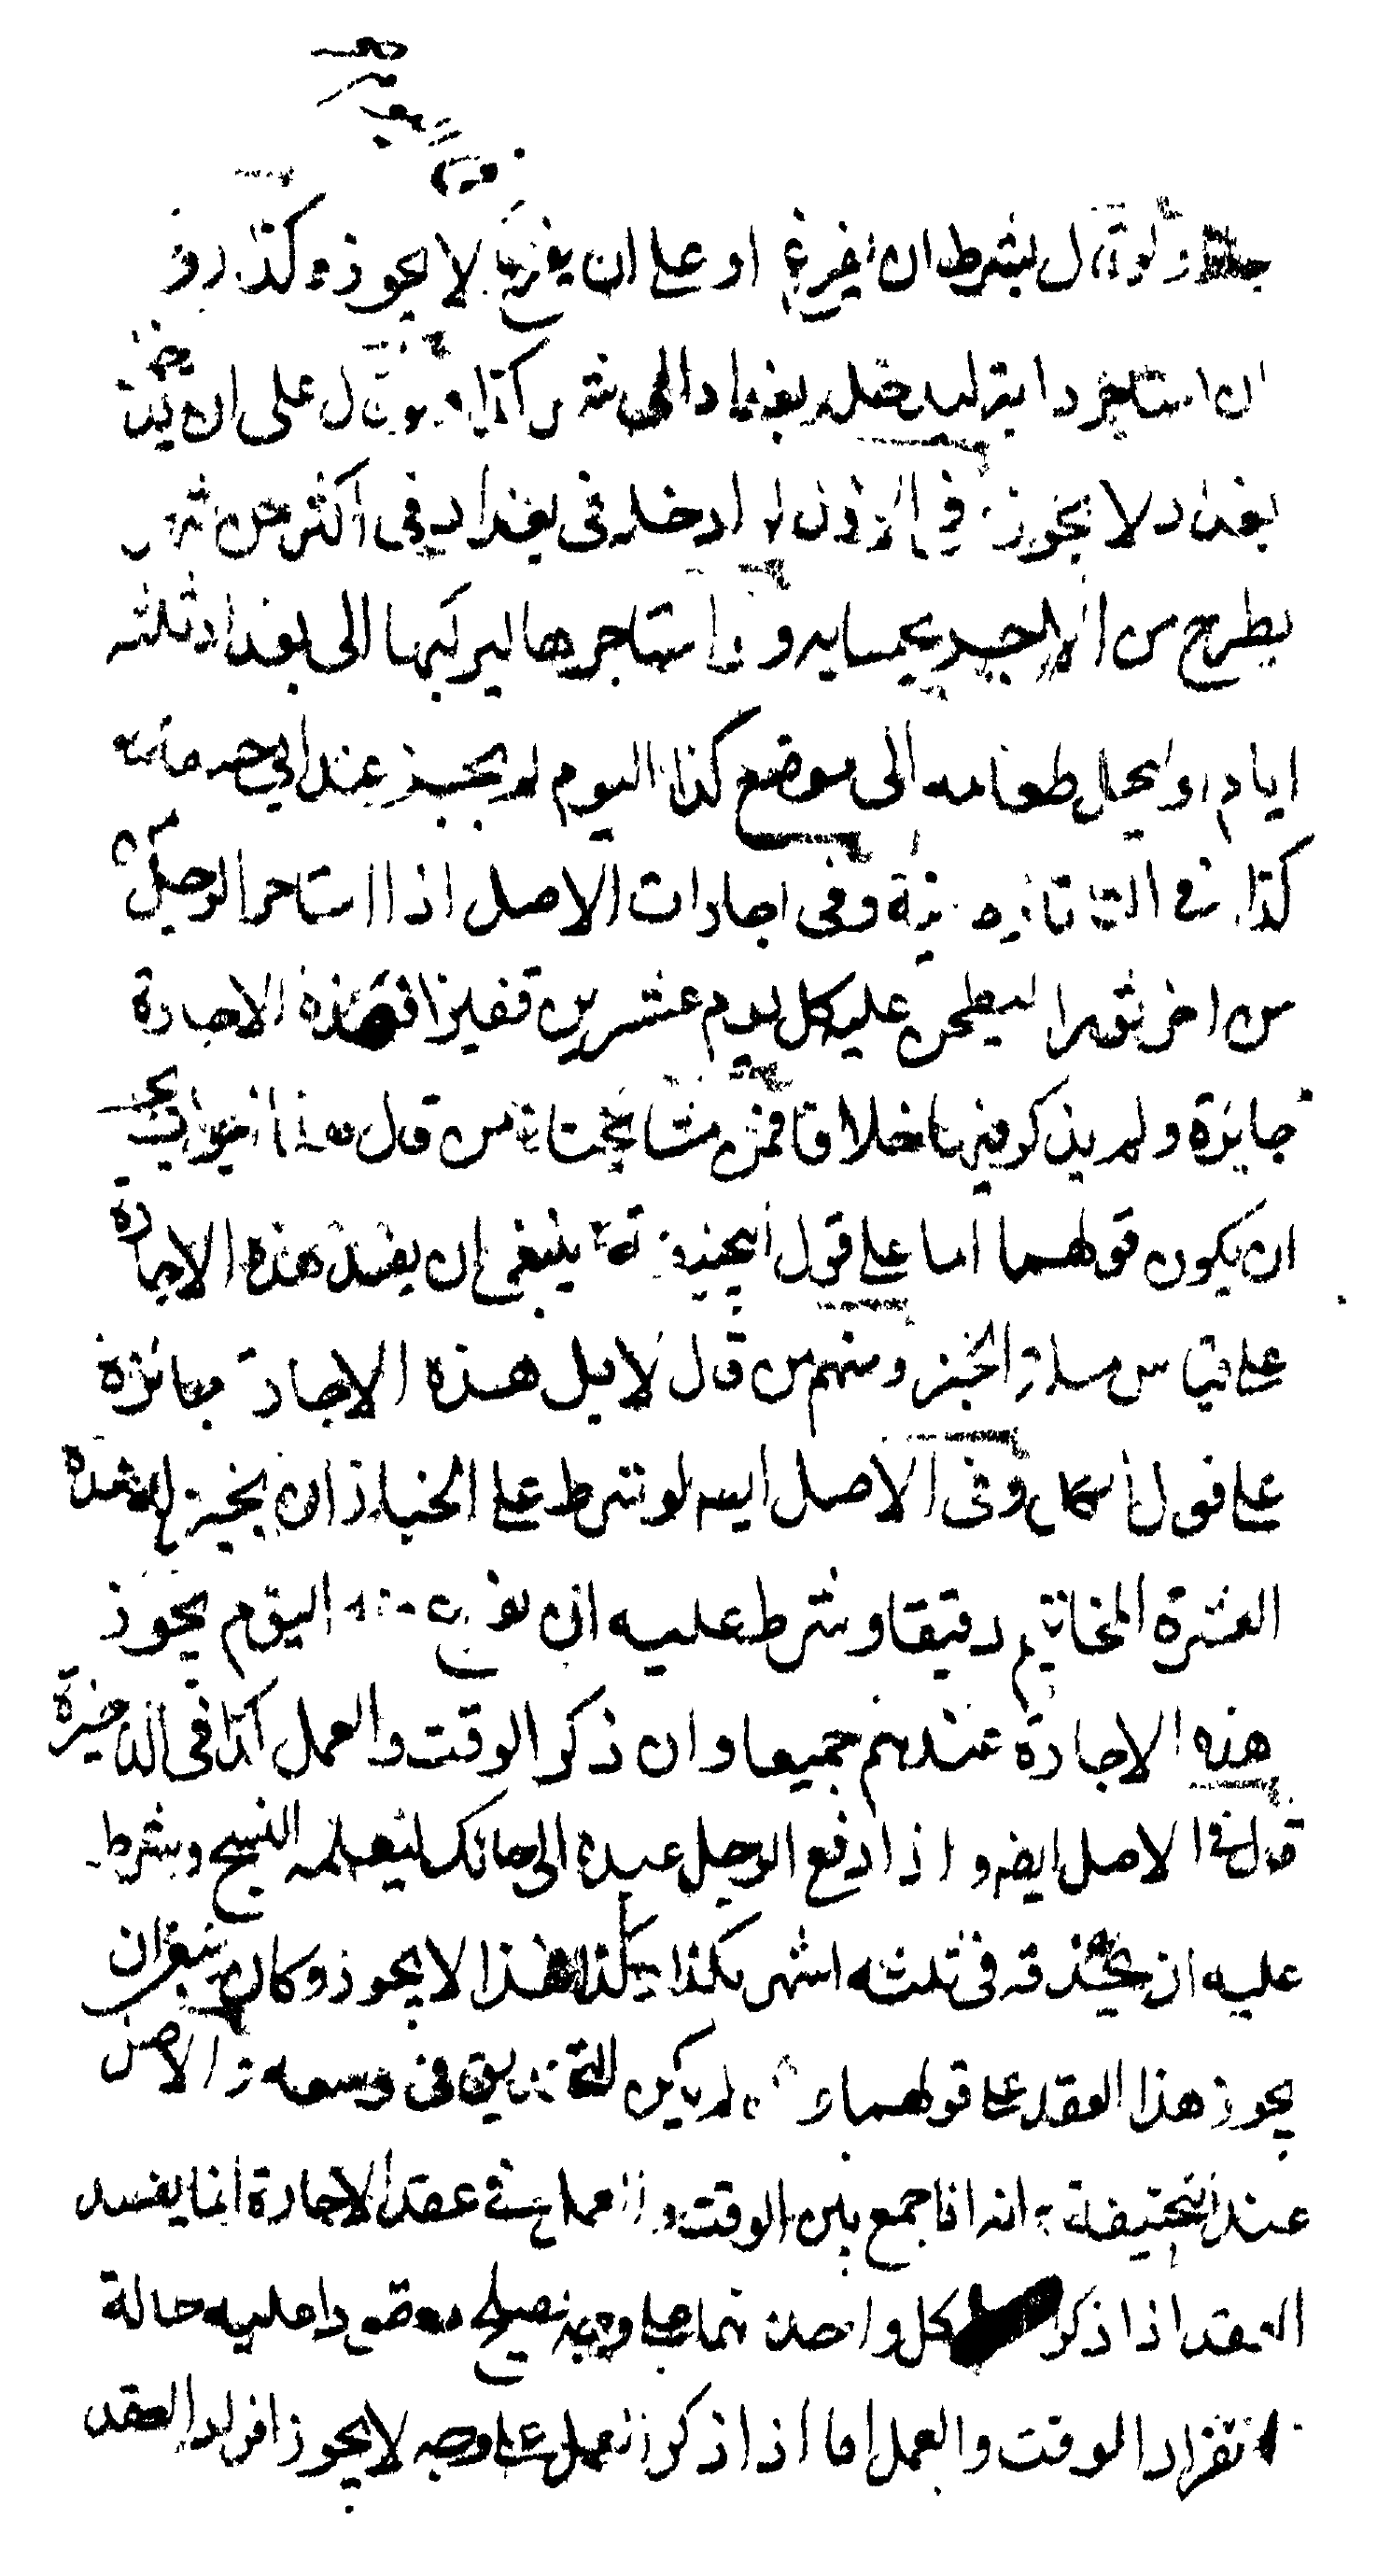 جاز ولو قال بشرط ان يفرغ او على ان يفرغ لا يجوز وكذا لو
ان استاجر دابة ليدخل بغداد الى شهر كذا ولو قال على ان يدخل
بغداد لا يجوز في الاول لو ادخله في بغداد في اكثر من شهر
يطرح من الاجر بحسابه ولو استاجرها ليركبها الى بغداد ثلثه
ايام او ليحمل طعامه الى موضع كذا اليوم لم يجز عند ابي حنيفة
كذا في التتارخانية وفي اجارات الاصل اذا استاجر الرجل
من اخر ثورا ليطحن عليه كل يوم عشرين قفيزا فهذه الاجارة
جايزة ولم يذكر فيها خلافا فمن مشايخنا من قال هذا الجواب يجب
ان يكون قولهما اما على قول ابيحنيفة ينبغي ان يفسد هذه الاجارة
على قياس مسئلة الخبز ومنهم من قال لا بل هذه الاجارة جائزة
على قول الكل وفي الاصل ايضا لو شرط على الخباز ان يخبز له هذه
العشرة المخاتيم دقيقا وشرط عليه ان يفرغ منه اليوم يجوز
هذه الاجارة عندهم جميعا وان ذكر الوقت والعمل كذا في الذخيرة
قال في الاصل ايضا واذا دفع الرجل عبده الى حائك ليعلمه النسج وشرط
عليه ان يحذقه في ثلثه اشهر بكذا فهذا لا يجوز وكان ينبغي ان
يجوز هذا العقد على قولهما وان لم يكن التحذيق في وسعه والاصل
عند ابيحنيفة انه اذا جمع بين الوقت والعمل في عقد الاجارة انما يفسد
العقد اذا ذكر كل واحد منهما على وجه يصلح معقودا عليه حالة
انفراد الوقت والعمل اما اذا ذكر العمل على وجه لا يجوز افراد العقد